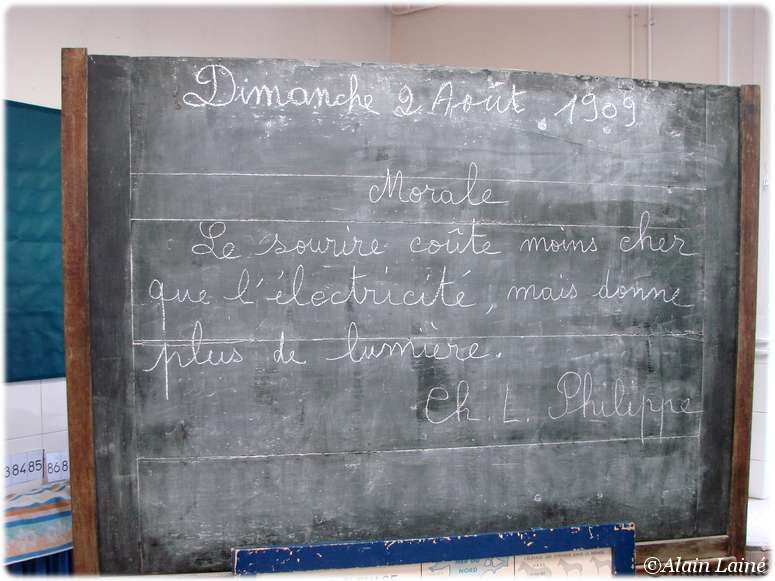 Dimanche 2 Août 1909
Morale
Le sourire coûte moins cher
que l'électricité, mais donne
plus de lumière.
Ch. L. Philippe
38485
868
NORD
©Alain Lainé